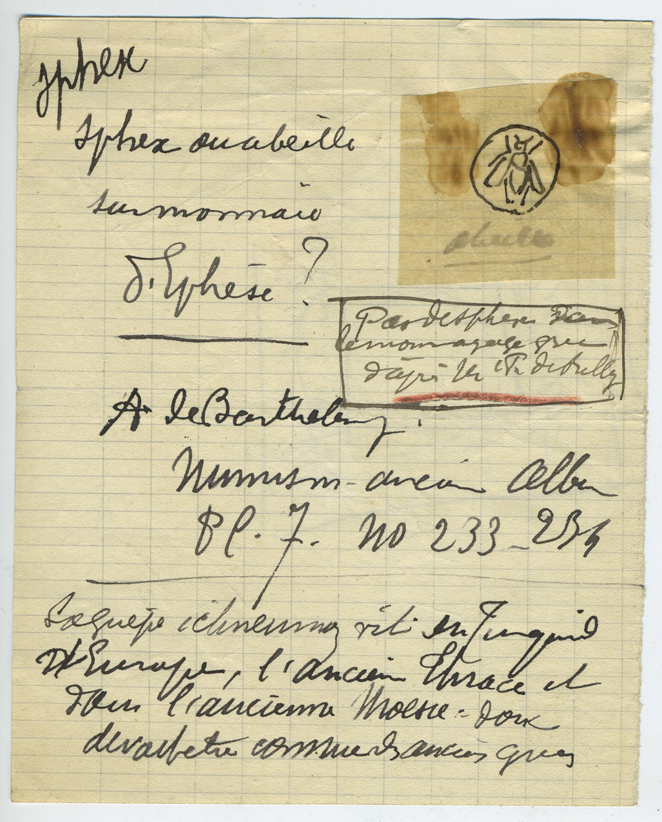 sphex
sphex ou abeille
sur monnaie
d'Ephèse ?
abeille
Pas de sphex dans
le monnayage grec
d'après Mr
A. de Barthélemy.
Numism. ancien Album
Pl. 7. no 233-234
La guêpe ichneumon vit en Turquie
d'Europe, l'ancien Thrace et
dans l'ancienne Moesie - donc
devait être connue des anciens grecs